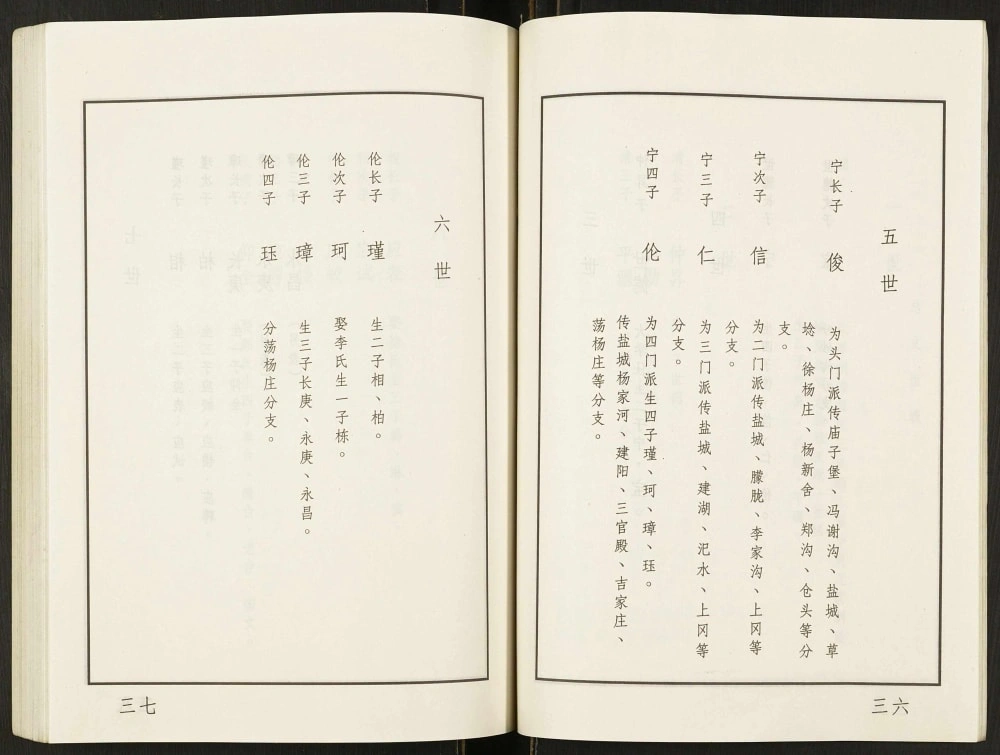 五世
宁长子 俊 为头门派传庙子堡、冯谢沟、盐城、草
埝、徐杨庄、杨新舍、郑沟、仓头等分
支。
宁次子 信 为二门派传盐城、朦胧、李家沟、上冈等
分支。
宁三子 仁 为三门派传盐城、建湖、汜水、上冈等
分支。
宁四子 伦 为四门派生四子瑾、珂、璋、珏。
传盐城杨家河、建阳、三官殿、吉家庄、
荡杨庄等分支。
三六
六世
伦长子 瑾 生二子相、柏。
伦次子 珂 娶李氏生一子栋。
伦三子 璋 生三子长庚、永庚、永昌。
伦四子 珏 分荡杨庄分支。
三七